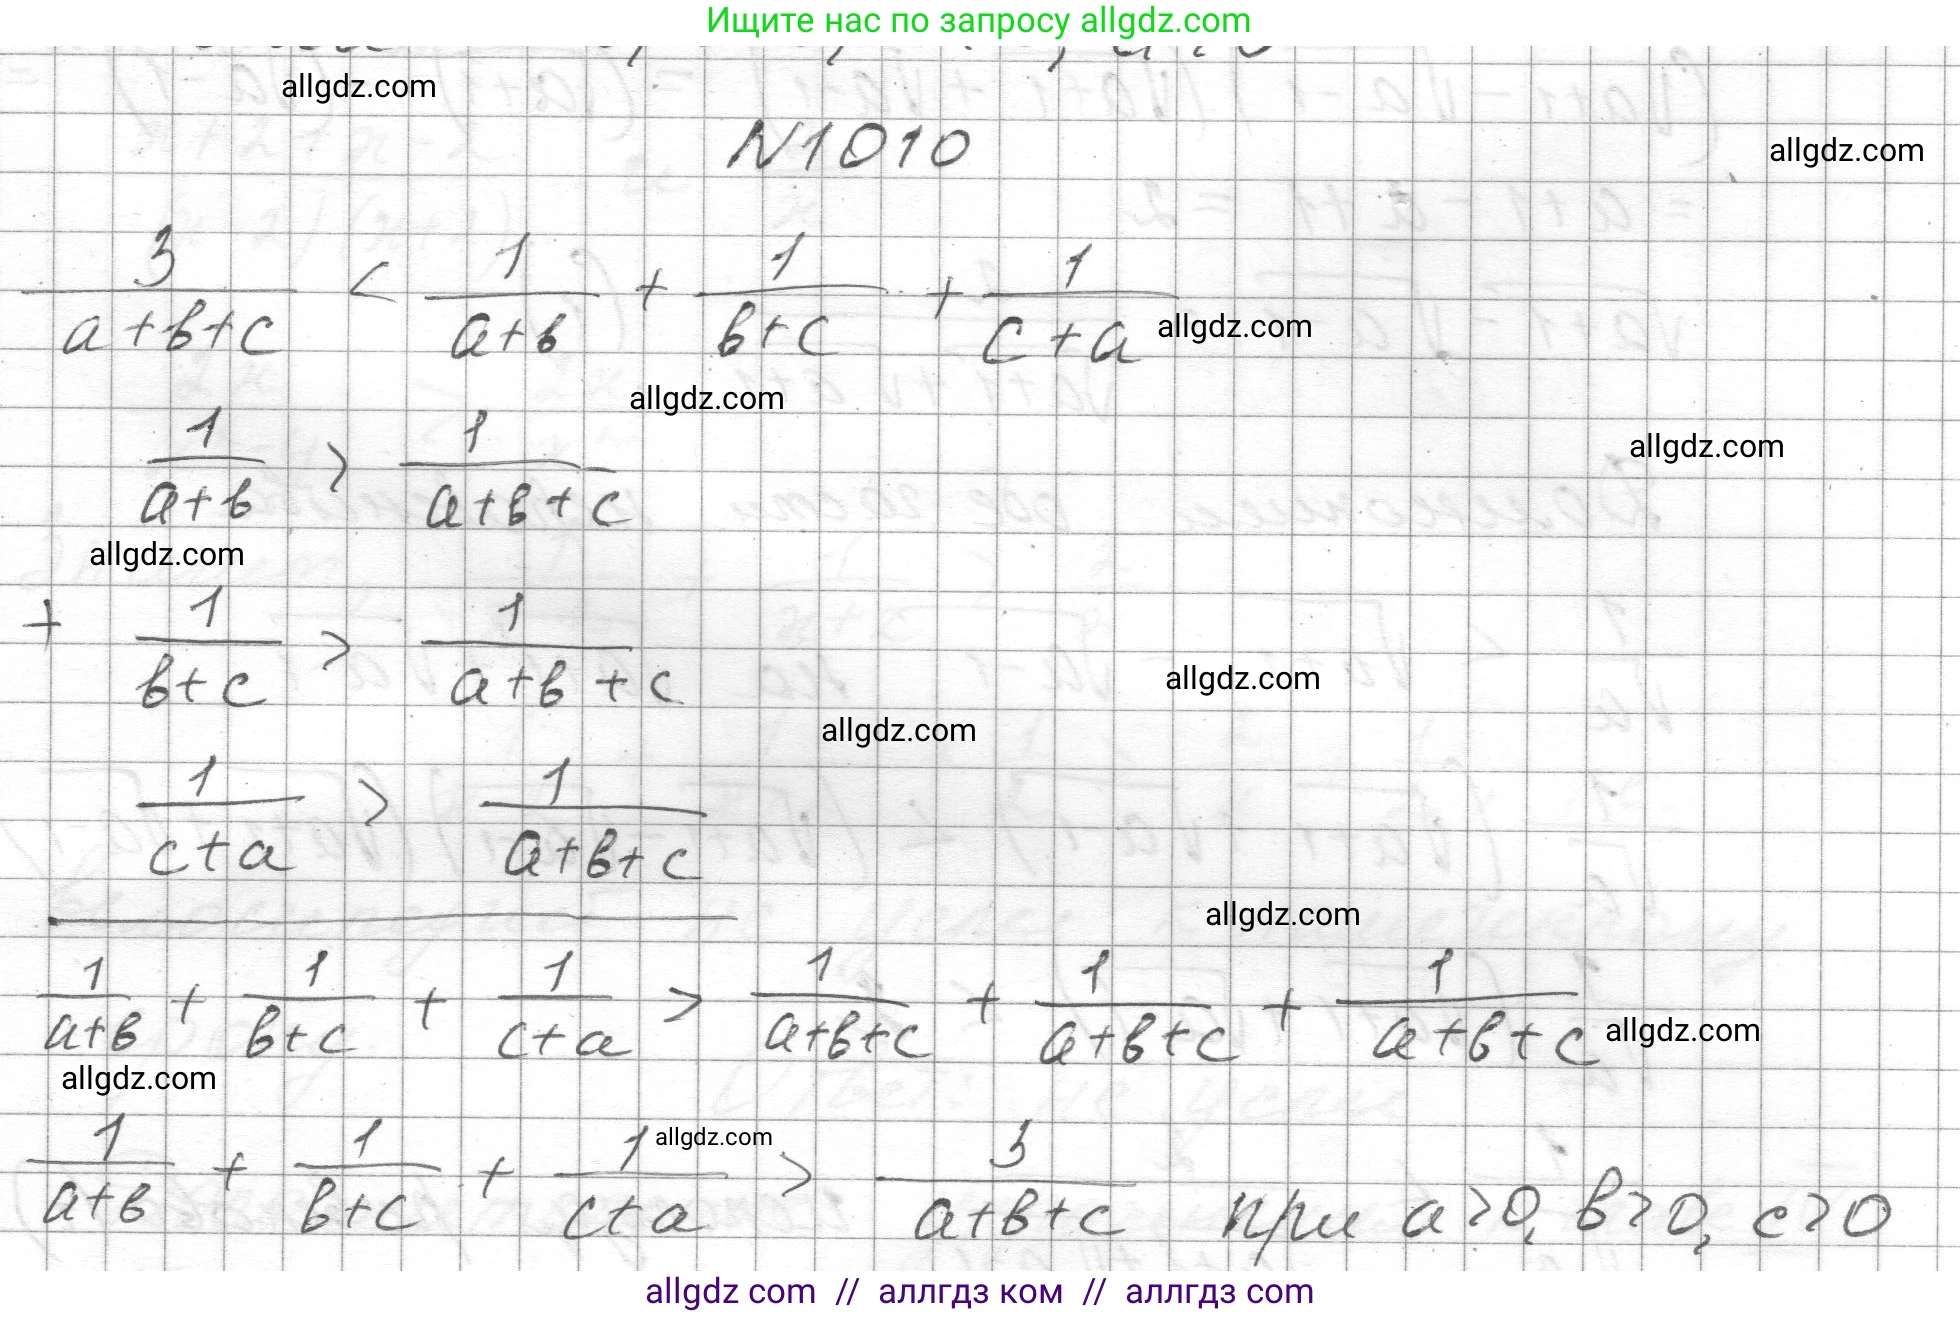 Ищите нас по запросу allgdz.com
allgdz.com
N1010
allgdz.com
3/(a+b+c) < 1/(a+b) + 1/(b+c) + 1/(c+a)
allgdz.com
allgdz.com
1/(a+b) > 1/(a+b+c)
allgdz.com
allgdz.com
+ 1/(b+c) > 1/(a+b+c)
allgdz.com
allgdz.com
1/(c+a) > 1/(a+b+c)
allgdz.com
1/(a+b) + 1/(b+c) + 1/(c+a) > 1/(a+b+c) + 1/(a+b+c) + 1/(a+b+c)
allgdz.com
allgdz.com
allgdz.com
1/(a+b) + 1/(b+c) + 1/(c+a) > 3/(a+b+c) при a>0, b>0, c>0
allgdz com // аллгдз ком // аллгдз com